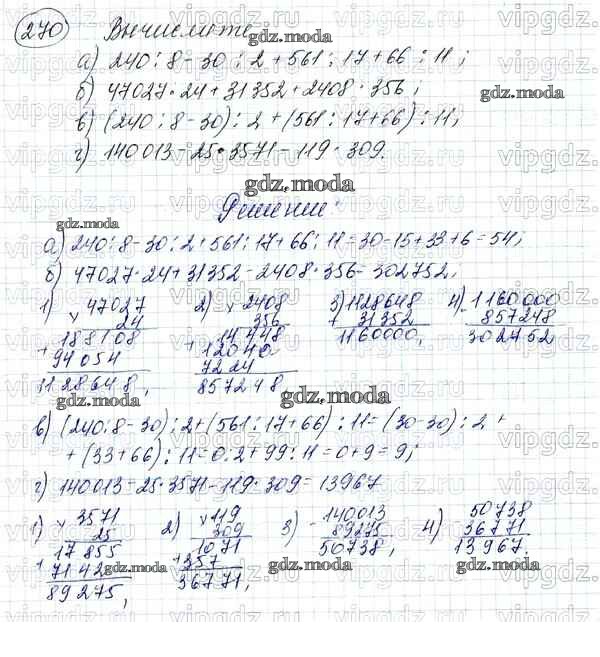 270 Вычислите
а) 240 : 8 - 30 : 2 + 561 : 17 + 66 : 11;
б) 47027 · 24 + 31352 - 2408 · 356;
в) (240 : 8 - 30) : 2 + (561 : 17 + 66) : 11;
г) 140013 - 25 · 3571 - 119 · 309.
Решение:
а) 240 : 8 - 30 : 2 + 561 : 17 + 66 : 11 = 30 - 15 + 33 + 6 = 54;
б) 47027 · 24 + 31352 - 2408 · 356 = 302752;
1) × 47027
24
+ 188108
94054
1128648,
2) × 2408
356
+ 14448
12040
7224
857248,
3) 1128648
+ 31352
1160000,
4) - 1160000
857248
302752
в) (240 : 8 - 30) : 2 + (561 : 17 + 66) : 11 = (30 - 30) : 2 +
+ (33 + 66) : 11 = 0 : 2 + 99 : 11 = 0 + 9 = 9;
г) 140013 - 25 · 3571 - 119 · 309 = 13967
1) × 3571
25
+ 17855
7142
89275,
2) × 119
309
+ 1071
357
36771,
3) - 140013
89275
50738,
4) - 50738
36771
13967.
gdz.moda
vipgdz.ru